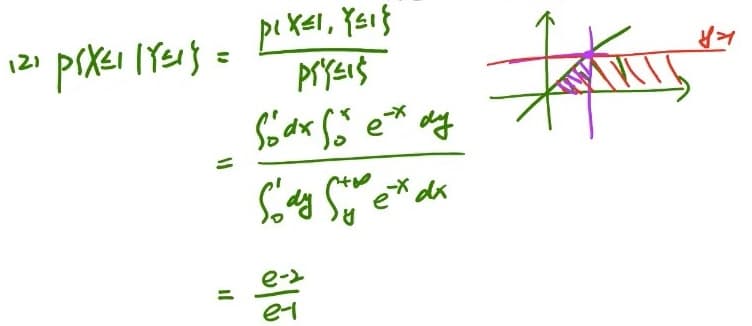 (2) P{X≤1 | Y≤1} = P{X≤1, Y≤1} / P{Y≤1}
= ∫₀¹ dx ∫₀ˣ e⁻ˣ dy / ∫₀¹ dy ∫ᵧ⁺∞ e⁻ˣ dx
= e-2 / e-1